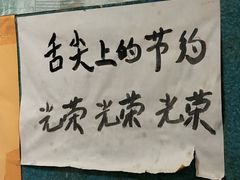 舌尖上的节约
光荣 光荣 光荣